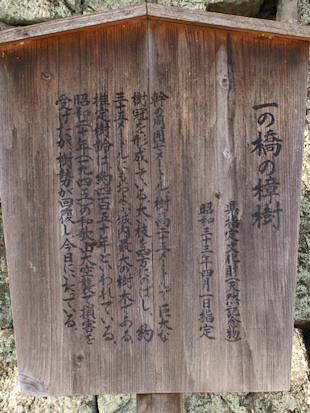 一の橋の樟樹
県指定文化財(天然記念物)
昭和三十三年四月一日指定
幹の周囲七メートル、樹高二五メートル、巨大な
樹冠を形成している。太枝を四方にのばし、約
三十五メートルにもおよぶ城内最大の樹木である。
推定樹齢は、約四百五十年といわれている。
昭和二十年(一九四五)の和歌山大空襲で損害を
受けたが、樹勢が回復し今日にいたっている。